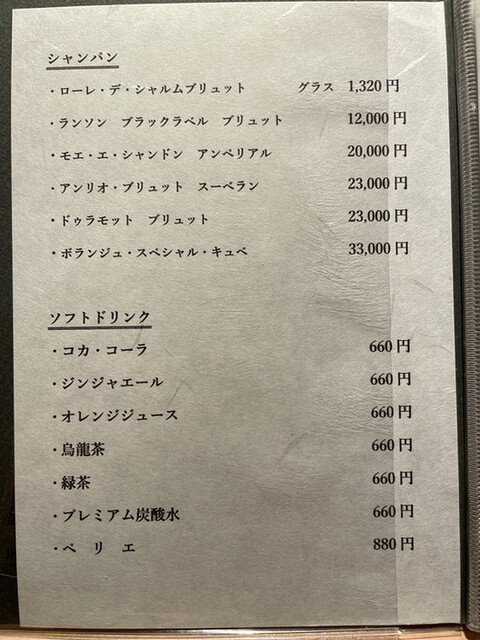 シャンパン
・ローレ・デ・シャルムブリュット グラス 1,320円
・ランソン ブラックラベル ブリュット 12,000円
・モエ・エ・シャンドン アンペリアル 20,000円
・アンリオ・ブリュット スーベラン 23,000円
・ドゥラモット ブリュット 23,000円
・ボランジュ・スペシャル・キュベ 33,000円
ソフトドリンク
・コカ・コーラ 660円
・ジンジャエール 660円
・オレンジジュース 660円
・烏龍茶 660円
・緑茶 660円
・プレミアム炭酸水 660円
・ペ リ エ 880円